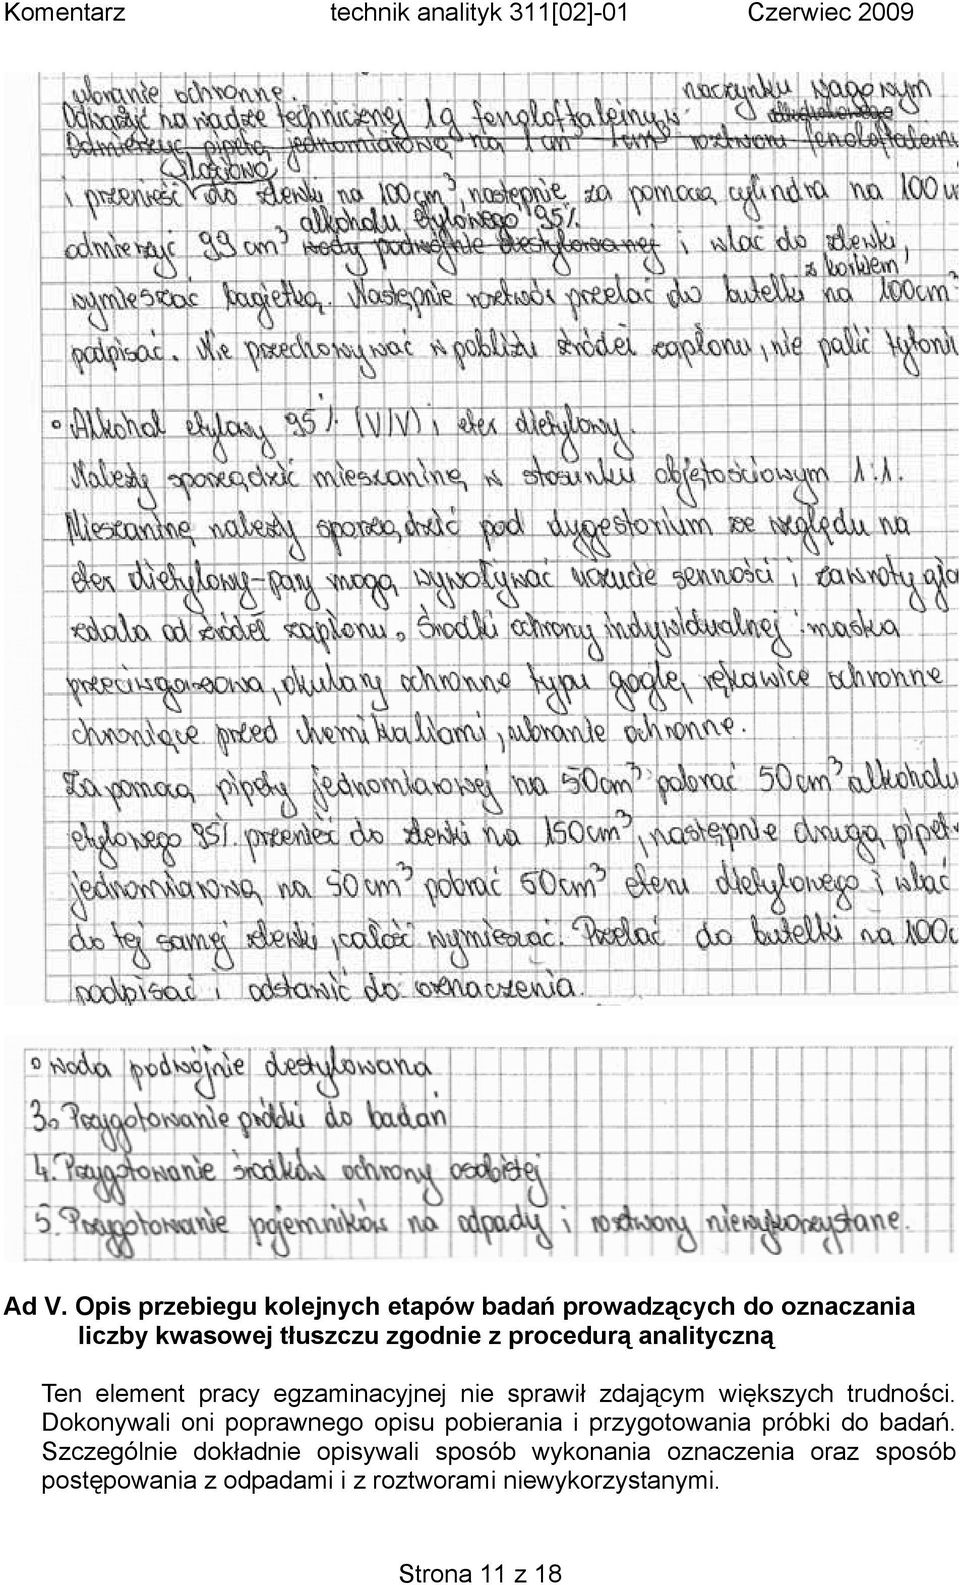 Komentarz technik analityk 311[02]-01 Czerwiec 2009
ubranie ochronne.
Odważyć na wadze technicznej 1g fenoloftaleiny w naczynku wagowym
Odmierzyć pipetą jednomiarową na 1 cm³ 1cm³ roztworu fenoloftaleiny
i przenieść ilościowo do zlewki na 100cm³, następnie za pomocą cylindra na 100
odmierzyć 99 cm³ alkoholu etylowego 95% wody podwójnie destylowanej i wlać do zlewki,
wymieszać bagietką. Następnie roztwór przelać do butelki z korkiem na 100cm³
podpisać. Nie przechowywać w pobliżu źródeł zapłonu, nie palić tytoniu
∘ Alkohol etylowy 95% (V/V) i eter dietylowy.
Należy sporządzić mieszaninę w stosunku objętościowym 1:1.
Mieszaninę należy sporządzić pod dygestorium ze względu na
eter dietylowy-pary mogą wywoływać uczucie senności i zawroty gło
zdala od źródeł zapłonu. Środki ochrony indywidualnej: maska
przeciwgazowa, okulary ochronne typu gogle, rękawice ochronne
chroniące przed chemikaliami, ubranie ochronne.
Za pomocą pipety jednomiarowej na 50cm³ pobrać 50cm³ alkoholu
etylowego 95% przenieść do zlewki na 150cm³, następnie drugą pipet
jednomiarową na 50cm³ pobrać 50cm³ eteru dietylowego i wlać
do tej samej zlewki, całość wymieszać. Przelać do butelki na 100c
podpisać i odstawić do oznaczenia.
∘ woda podwójnie destylowana
3. Przygotowanie próbki do badań
4. Przygotowanie środków ochrony osobistej
5. Przygotowanie pojemników na odpady i roztwory niewykorzystane.
Ad V. Opis przebiegu kolejnych etapów badań prowadzących do oznaczania
liczby kwasowej tłuszczu zgodnie z procedurą analityczną
Ten element pracy egzaminacyjnej nie sprawił zdającym większych trudności.
Dokonywali oni poprawnego opisu pobierania i przygotowania próbki do badań.
Szczególnie dokładnie opisywali sposób wykonania oznaczenia oraz sposób
postępowania z odpadami i z roztworami niewykorzystanymi.
Strona 11 z 18